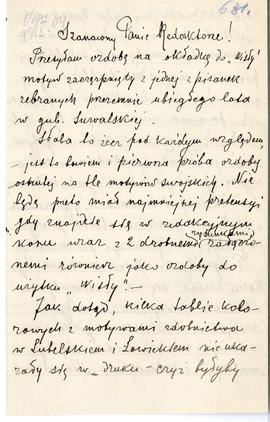 631.
Szanowny Panie Redaktorze!
Przesyłam ozdobę na okładkę do „Wisły"
motyw zaczerpnięty z jednej z pisanek
zebranych przezemnie ubiegłego lata
w gub. Suwalskiej.
Słaba to rzecz pod każdym względem
- jest to bowiem i pierwsza próba ozdoby
osnutej na tle motywów swojskich. Nie
będę przeto miał najmniejszej pretensyi
gdy znajdzie się w redakcyjnym
rysunkami
koszu wraz z 2 drobnemi załączo-
nemi również jako ozdoby do
użytku „Wisły". —
Jak dotąd, kilka tablic kolo-
rowych z motywami zdobnictwa
w Lubelskiem i Łowickiem nie uka-
zały się w „druku - czyż byłyby